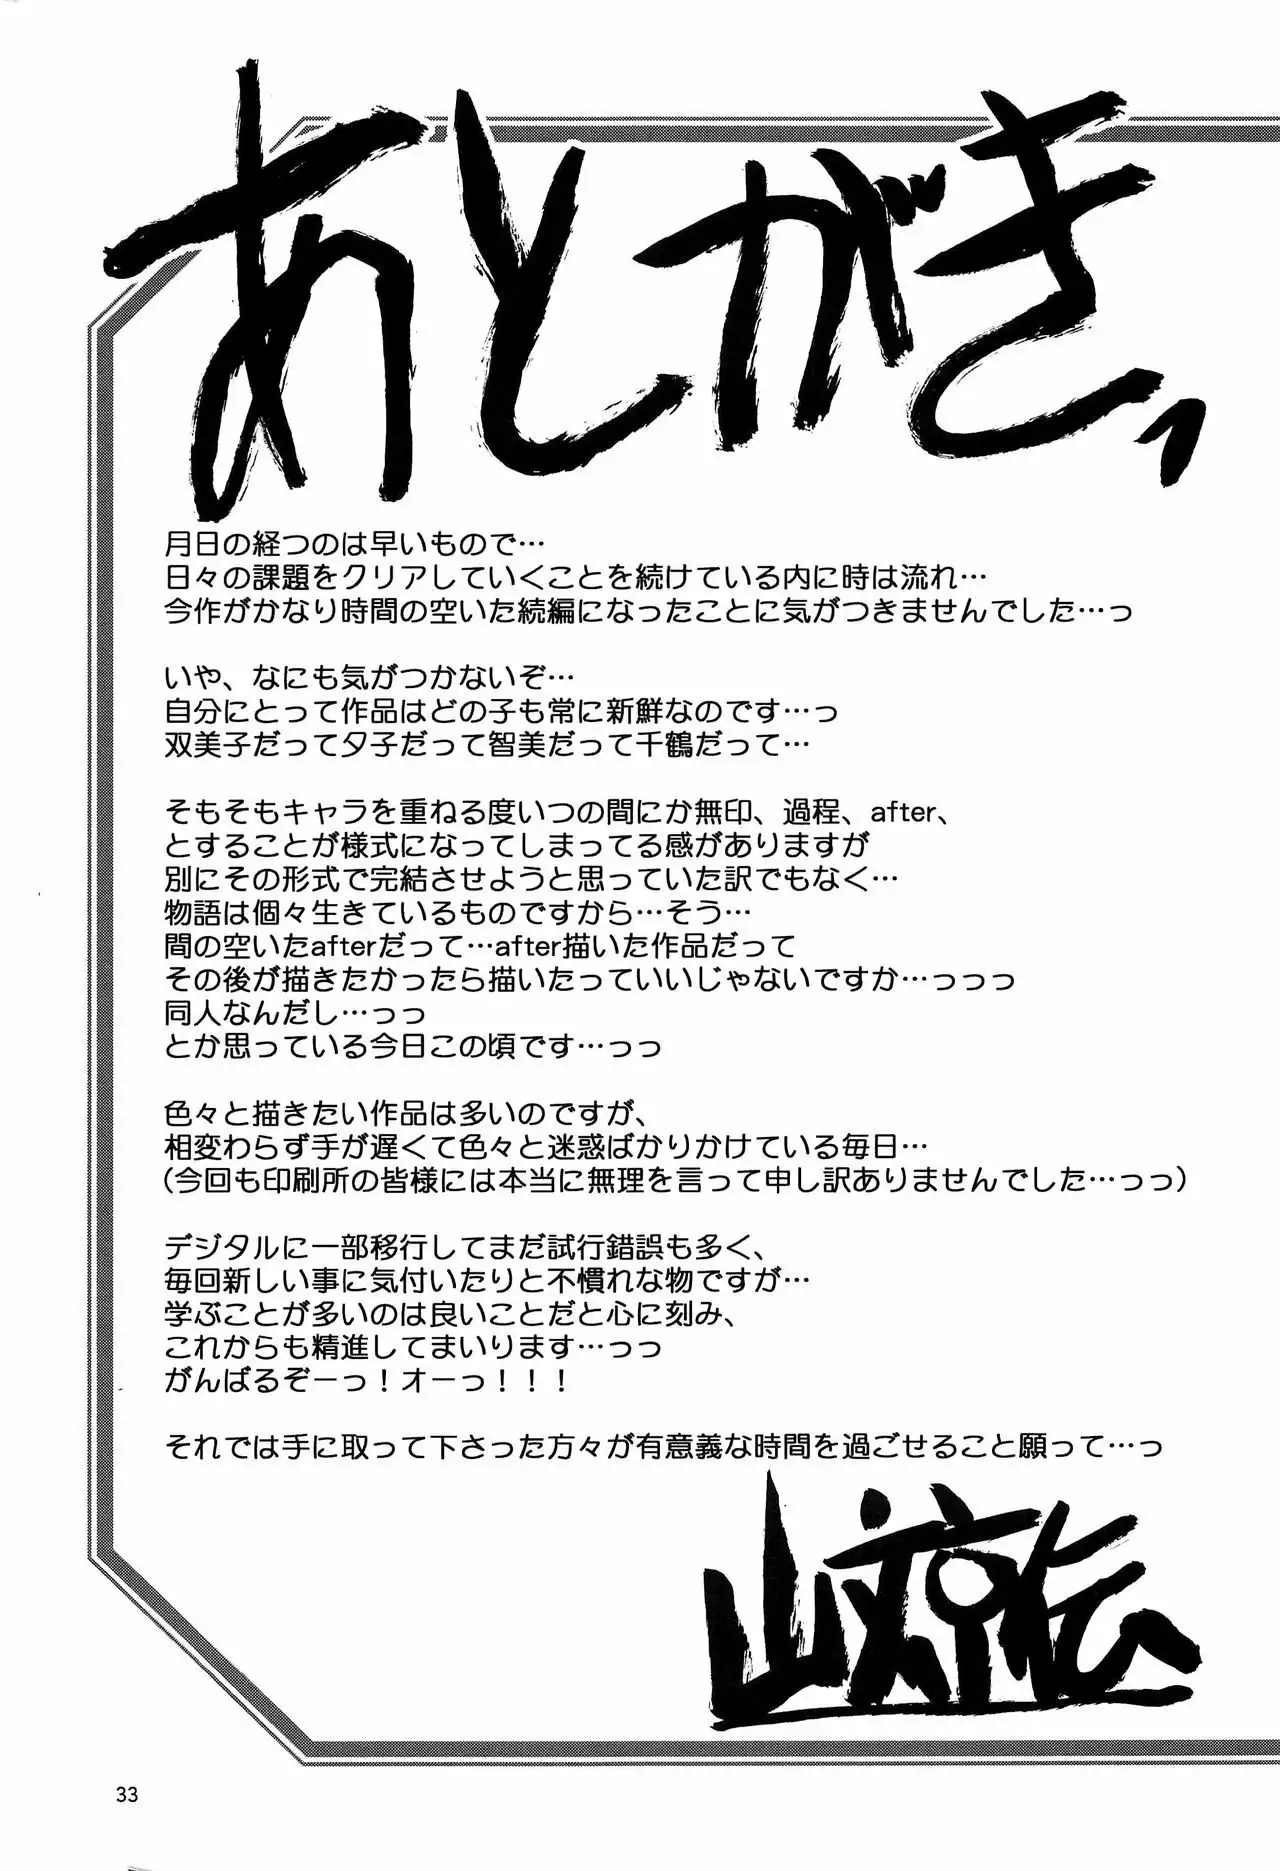 あとがき
月日の経つのは早いもので…
日々の課題をクリアしていくことを続けている内に時は流れ…
今作がかなり時間の空いた続編になったことに気がつきませんでした…っ
いや、なにも気がつかないぞ…
自分にとって作品はどの子も常に新鮮なのです…っ
双美子だって夕子だって智美だって千鶴だって…
そもそもキャラを重ねる度いつの間にか無印、過程、after、
とすることが様式になってしまってる感がありますが
別にその形式で完結させようと思っていた訳でもなく…
物語は個々生きているものですから…そう…
間の空いたafterだって…after描いた作品だって
その後が描きたかったら描いたっていいじゃないですか…っっっ
同人なんだし…っっ
とか思っている今日この頃です…っっ
色々と描きたい作品は多いのですが、
相変わらず手が遅くて色々と迷惑ばかりかけている毎日…
(今回も印刷所の皆様には本当に無理を言って申し訳ありませんでした…っっ)
デジタルに一部移行してまだ試行錯誤も多く、
毎回新しい事に気付いたりと不慣れな物ですが…
学ぶことが多いのは良いことだと心に刻み、
これからも精進してまいります…っっ
がんばるぞーっ！オーっ！！！
それでは手に取って下さった方々が有意義な時間を過ごせること願って…っ
33